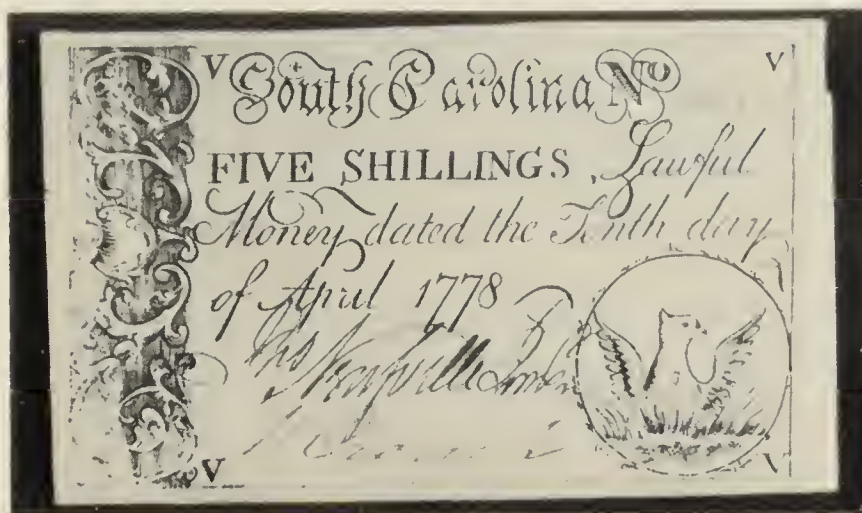 V South Carolina No V
FIVE SHILLINGS, Lawful
Money dated the Tenth day
of April 1778
V